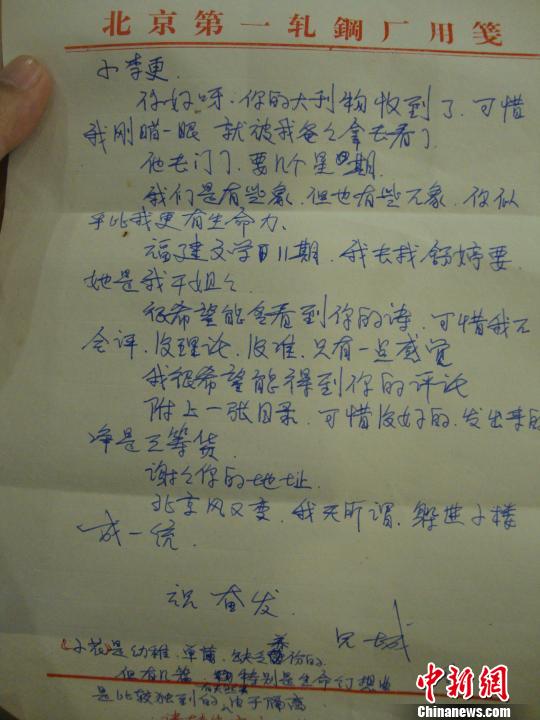 北京第一轧鋼厂用笺
小李更.
你好呀.你的大刊物收到了.可惜
我刚瞄一眼 就被我爸々拿去看了
他去门了.要几个星期.
我们是有些象.但也有些不象.你似
乎比我更有生命力.
福建文学11期.我去找舒婷要.
她是我干姐々.
很希望能看到你的诗.可惜我不
会评.没理论.没准.只有一点感觉
我很希望能得到你的评论
附上一张目录.可惜没好的.发出来的
净是三等货.
谢々你的地址.
北京风又变.我无所谓.躲进小楼
成一统.
祝 奋发.
兄 城
是幼稚.单薄.缺乏养份的.
但有几篇.特别是生命幻想曲
是比较独到的.由于隔离
中新网
www.chinanews.com